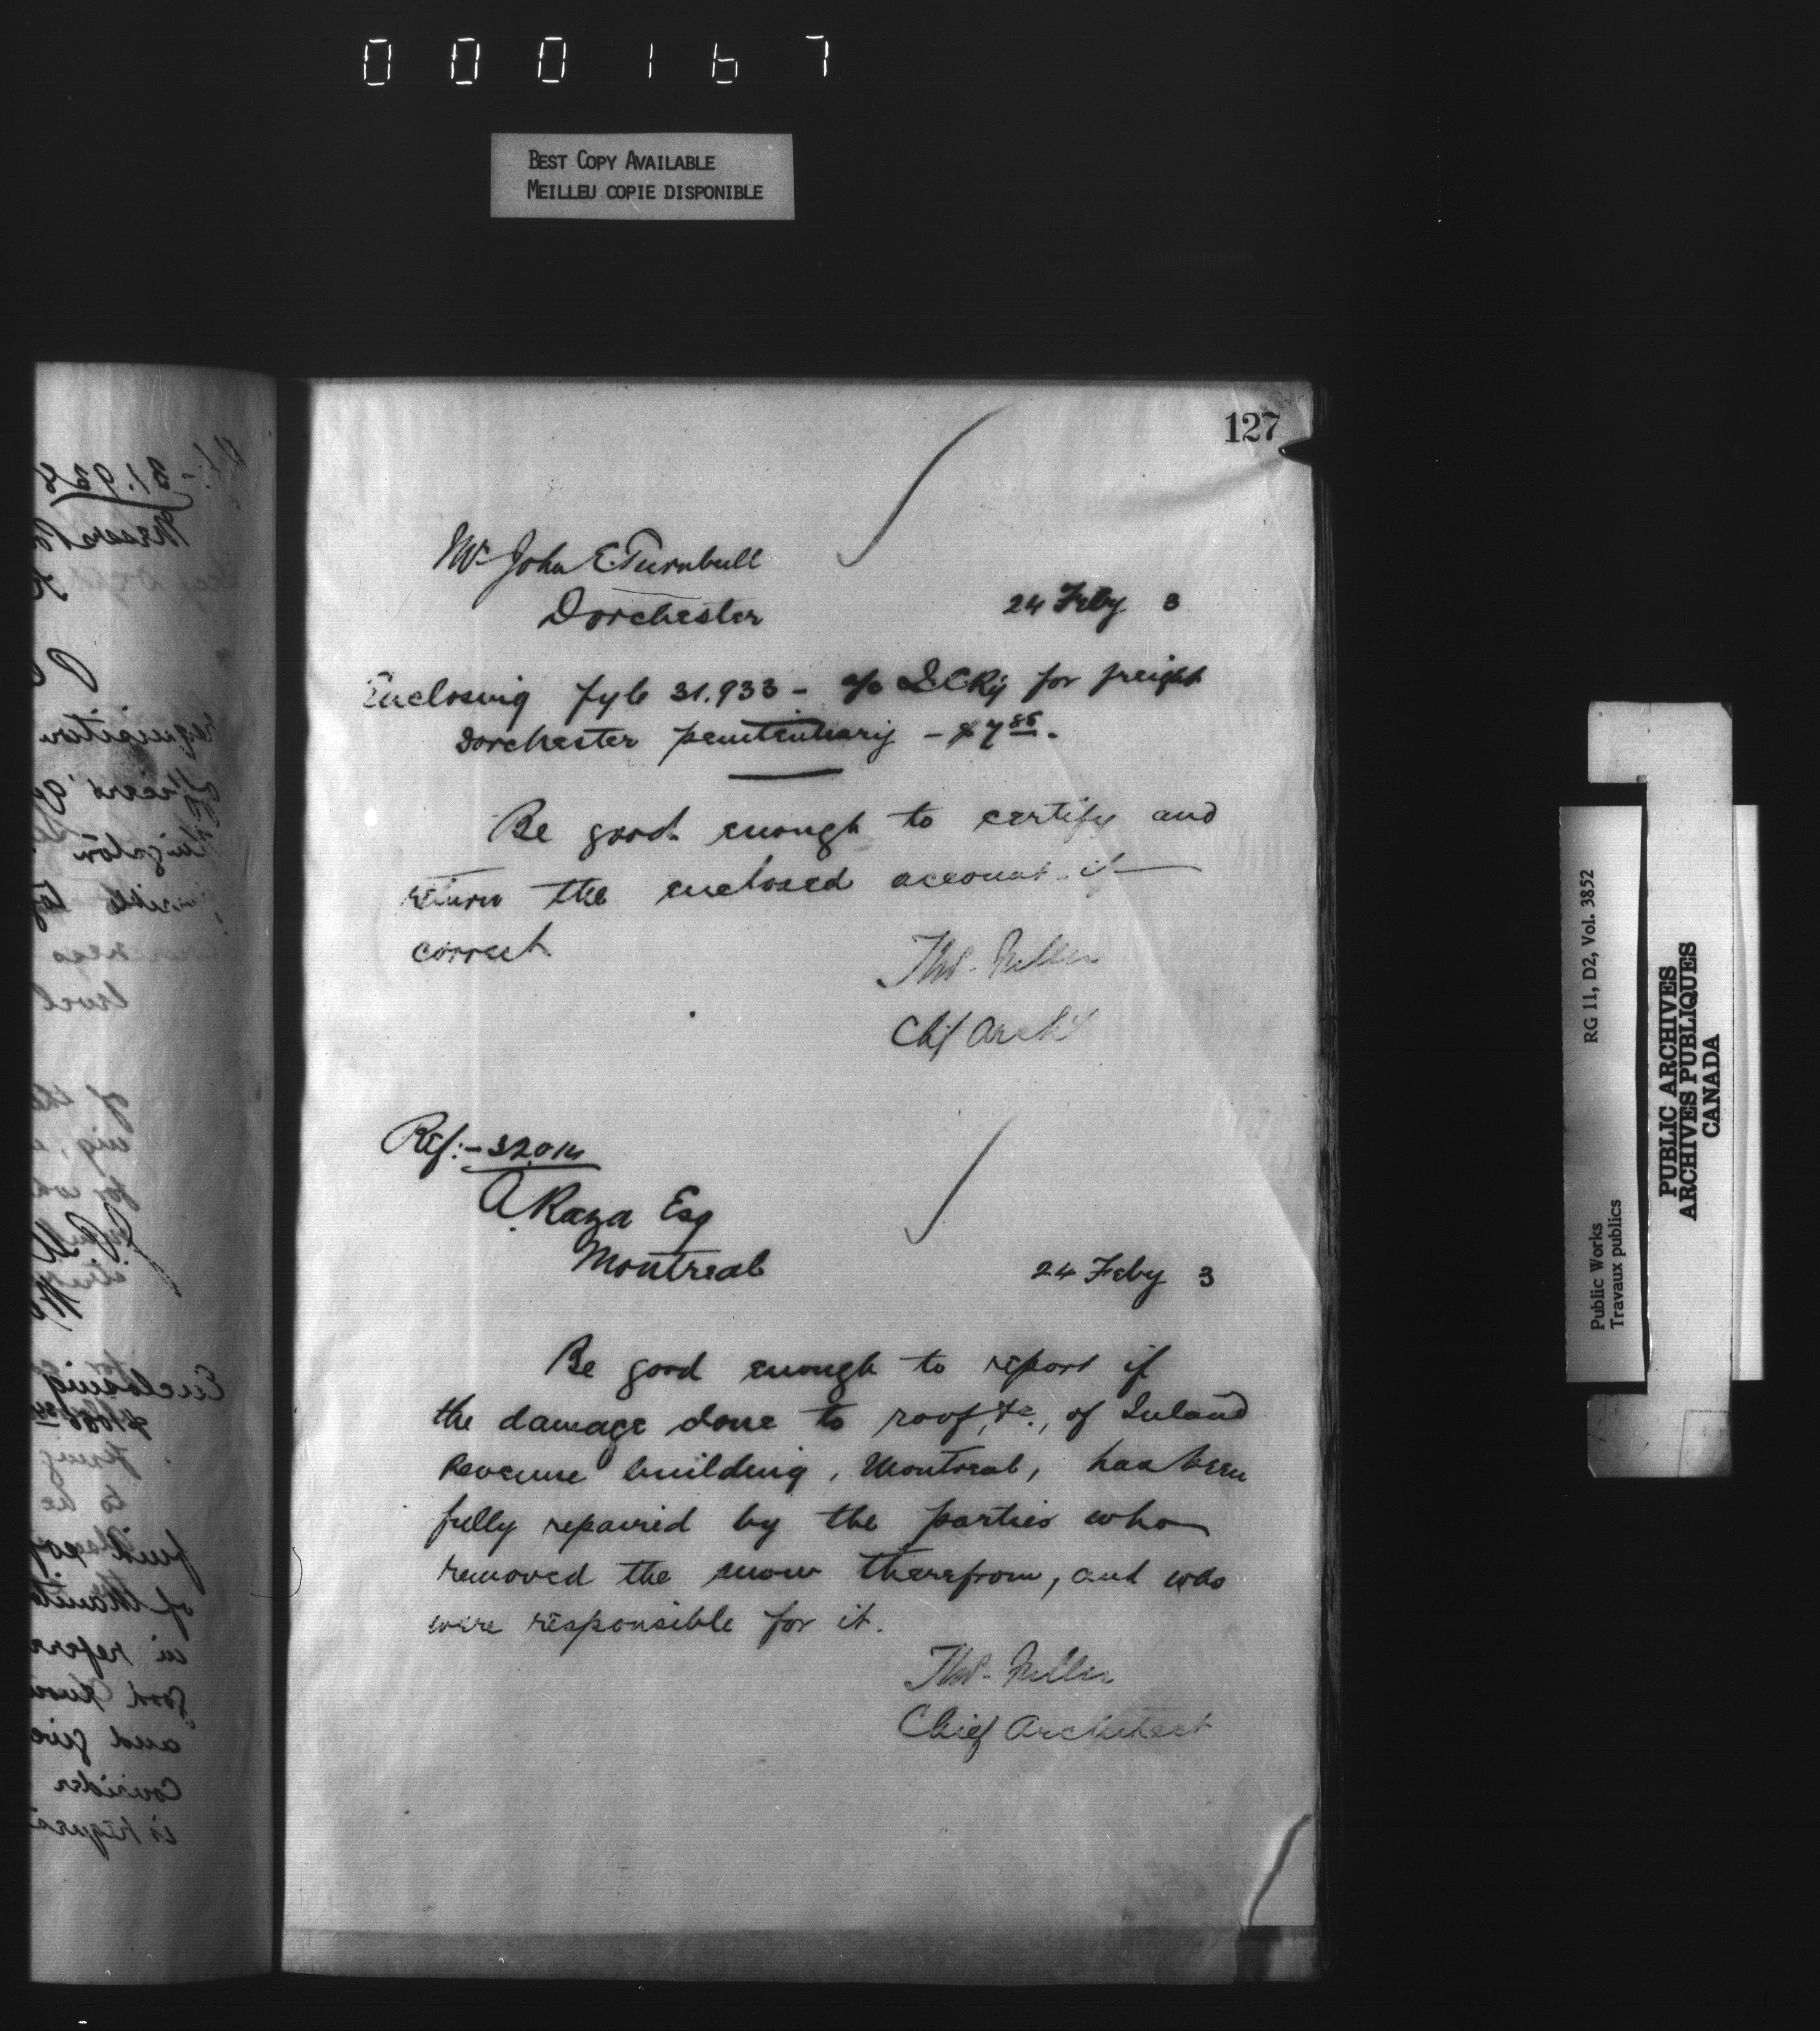 000167
BEST COPY AVAILABLE
MEILLEU COPIE DISPONIBLE
127
Mr John E. Turnbull
Dorchester
24 Feby 3
Enclosing fyle 31.933 - a/c I.C.Ry for freight
Dorchester penitentiary - $7.85.
Be good enough to certify and
return the enclosed account if
correct
Thos. Fuller
Chf Archt
Ref:- 32.014
A. Raza Esq
Montreal
24 Feby 3
Be good enough to report if
the damage done to roof, &c., of Inland
Revenue building, Montreal, has been
fully repaired by the parties who
removed the snow therefrom, and who
were responsible for it.
Thos. Fuller
Chief Architect
RG 11, D2, Vol. 3852
Public Works
Travaux publics
PUBLIC ARCHIVES
ARCHIVES PUBLIQUES
CANADA